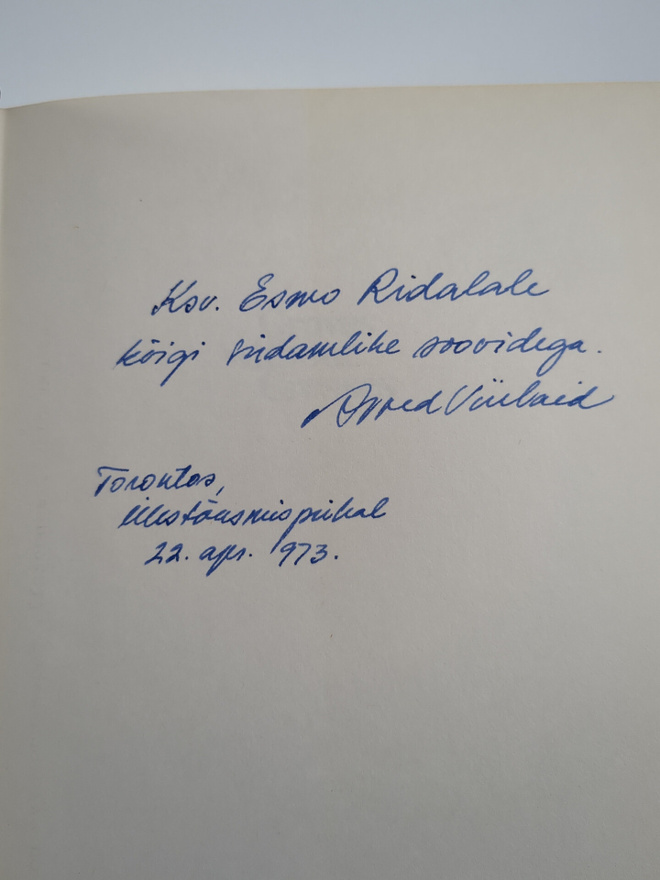 Ksv. Esmo Ridalale
kõigi südamlike soovidega.
Arved Viirlaid
Torontos,
Ülestõusmispühal
22. apr. 1973.